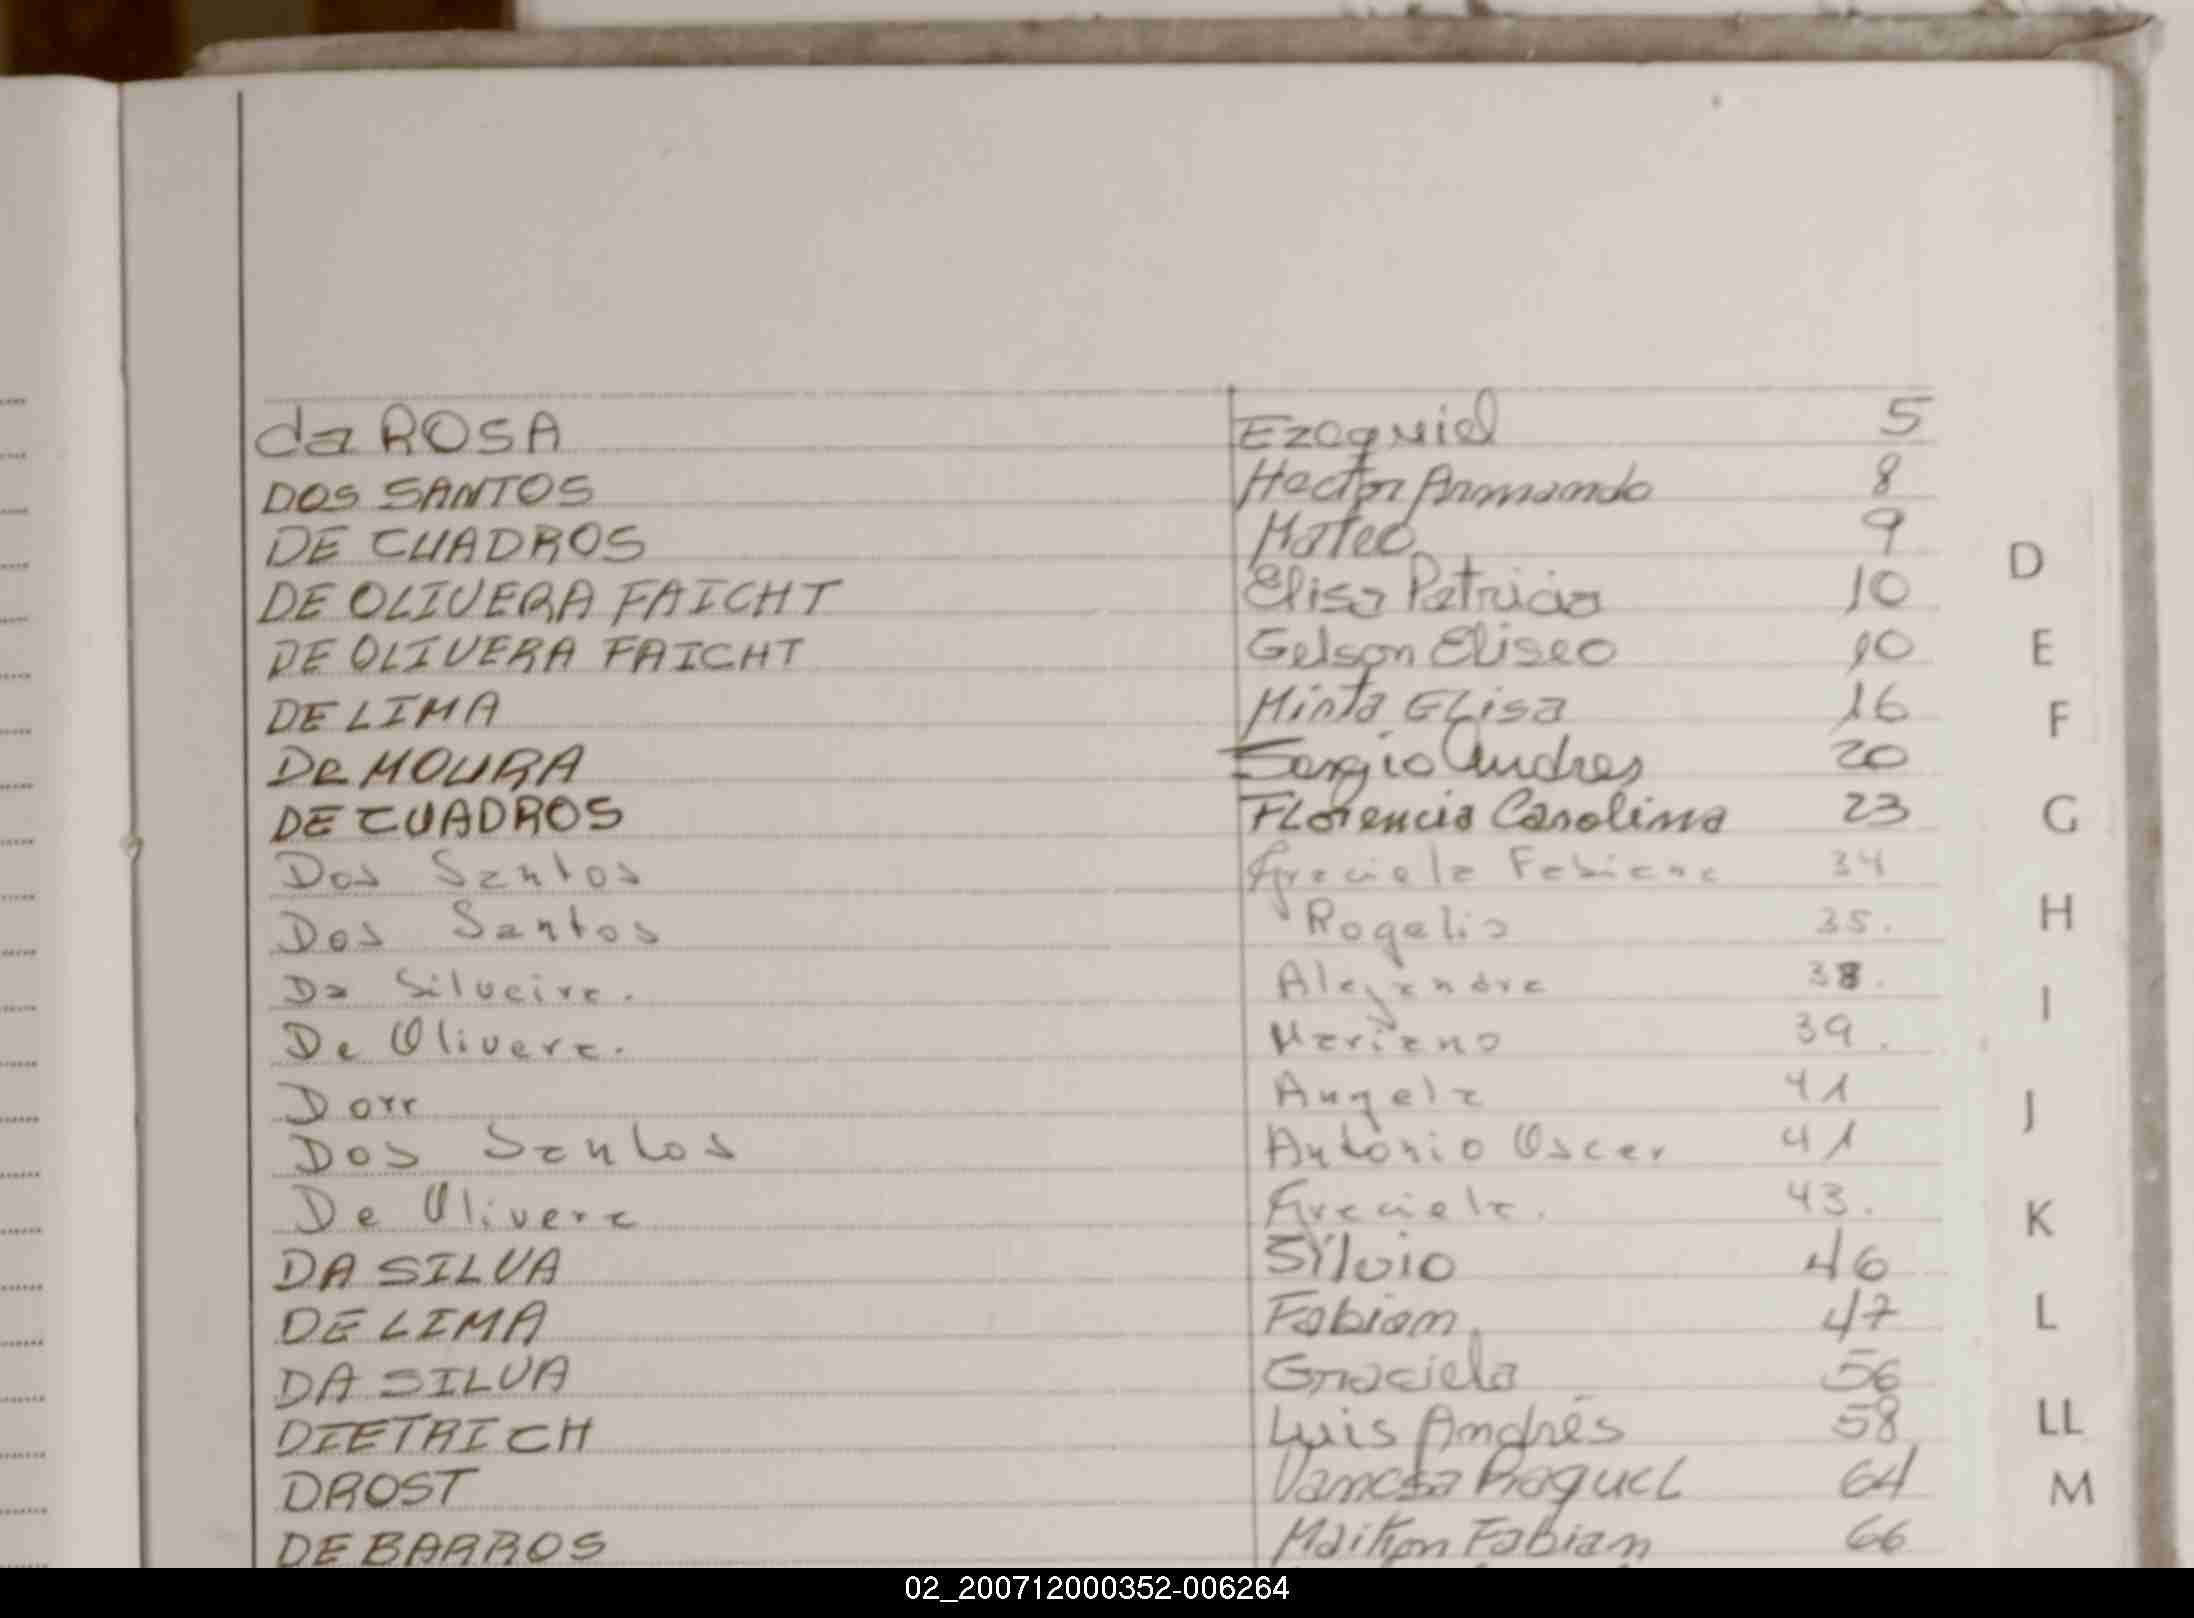 da ROSA Ezequiel 5
DOS SANTOS Hector Armando 8
DE CUADROS Mateo 9
DE OLIVERA FAICHT Elisa Patricia 10
DE OLIVERA FAICHT Gelson Eliseo 10
DE LIMA Mirta Elisa 16
De MOURA Sergio Andres 20
DE CUADROS Florencia Carolina 23
Dos Santos Graciela Fabiana 34
Dos Santos Rogelio 35.
Da Silveira. Alejandra 38.
De Olivera. Mariano 39.
Dorr Angela 41
Dos Santos Antonio Oscar 41
De Olivera Graciela. 43.
DA SILVA Silvio 46
DE LIMA Fabian 47
DA SILVA Graciela 56
DIETRICH Luis Andrés 58
DROST Vanesa Raquel 64
DE BARROS Fabian 66
D
E
F
G
H
I
J
K
L
LL
M
02_200712000352-006264